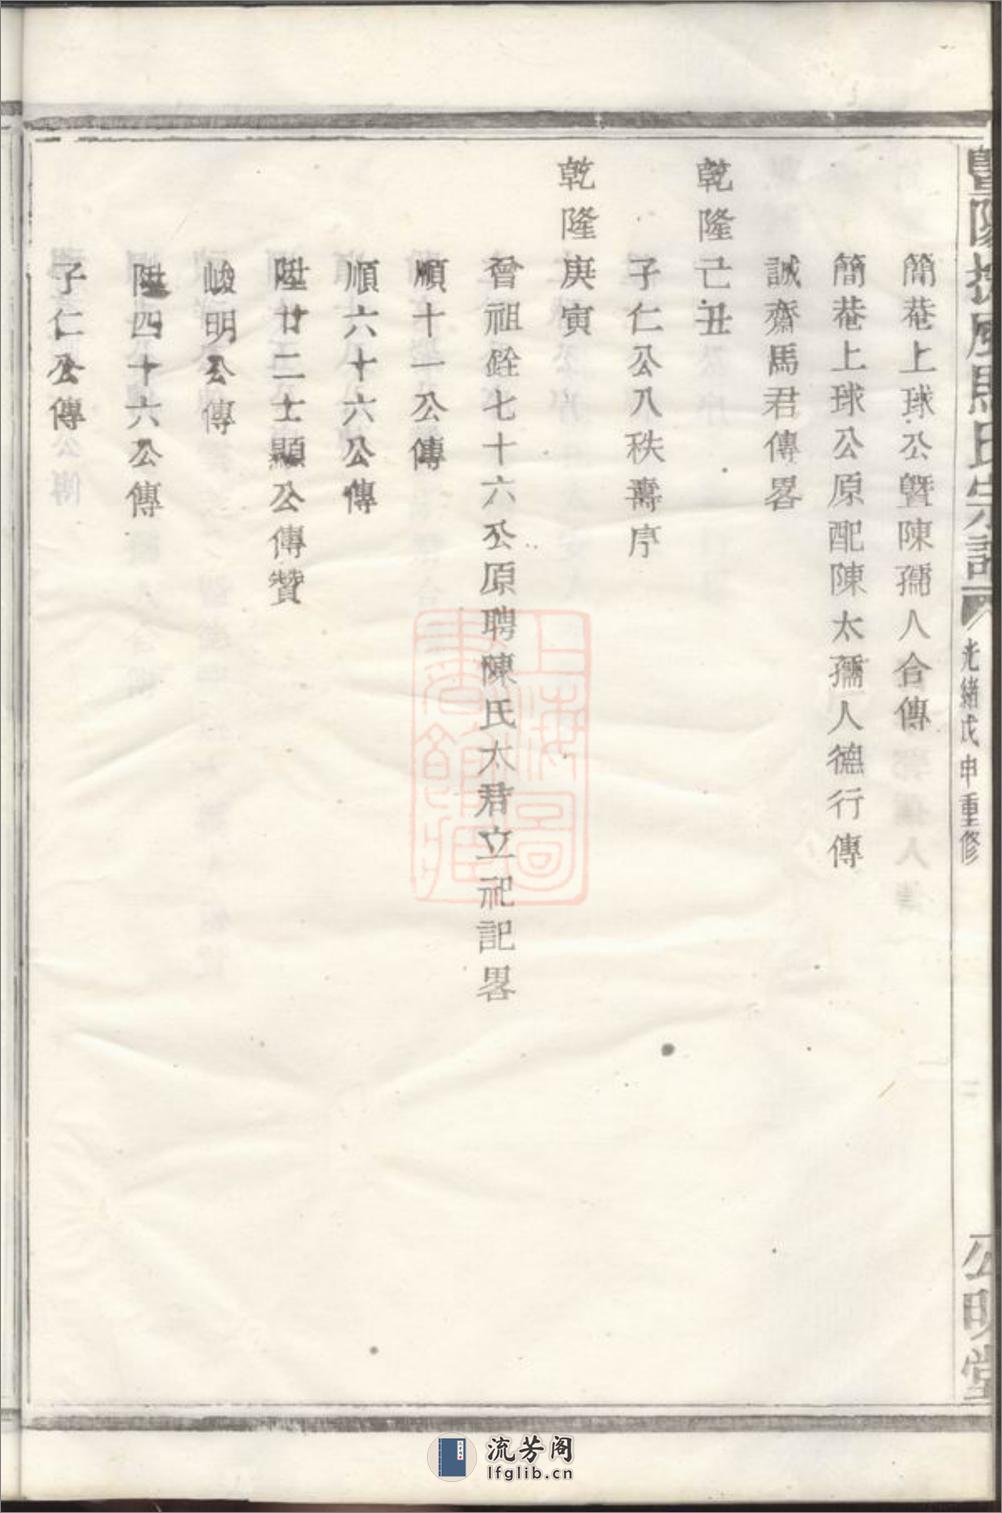 暨陽扶風馬氏宗譜 光緒戊申重修 公明堂
簡菴上球公暨陳孺人合傳
簡菴上球公原配陳太孺人德行傳
誠齋馬君傳畧
乾隆己丑
子仁公八秩壽序
乾隆庚寅
曾祖銓七十六公原聘陳氏太君立祀記畧
順十一公傳
順六十六公傳
陞廿二士顯公傳贊
峻明公傳
陞四十六公傳
子仁公傳
上海圖書館藏
流芳阁
lfglib.cn